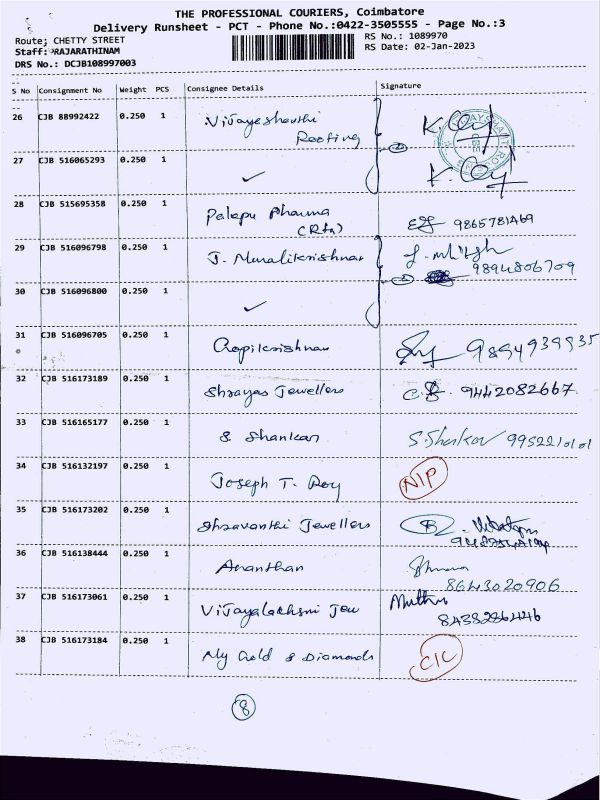 THE PROFESSIONAL COURIERS, Coimbatore
Delivery Runsheet - PCT - Phone No.:0422-3505555 - Page No.:3
Route; CHETTY STREET
RS No.: 1089970
Staff: RAJARATHINAM
RS Date: 02-Jan-2023
DRS No.: DCJB108997003
S No Consignment No Weight PCS Consignee Details Signature
26 CJB 88992422 0.250 1 Vijayeshanthi
Roofing
27 CJB 516065293 0.250 1 ✓
28 CJB 515695358 0.250 1 Palepu Pharma 9865781469
(Rtn)
29 CJB 516096798 0.250 1 J. Muralikrishnan
9894806709
30 CJB 516096800 0.250 1 ✓
31 CJB 516096705 0.250 1 Gopikrishnan 9894939935
32 CJB 516173189 0.250 1 Shrayas Jewellers 9442082667
33 CJB 516165177 0.250 1 S Shankar S. Shankar 9952210101
34 CJB 516132197 0.250 1 Joseph T. Roy N/P
35 CJB 516173202 0.250 1 Shravanthi Jewellers
36 CJB 516138444 0.250 1 Ananthan
8643020906
37 CJB 516173061 0.250 1 Vijayalakshmi Jew Muthu
8438286446
38 CJB 516173184 0.250 1 My Gold & Diamonds C/L
8